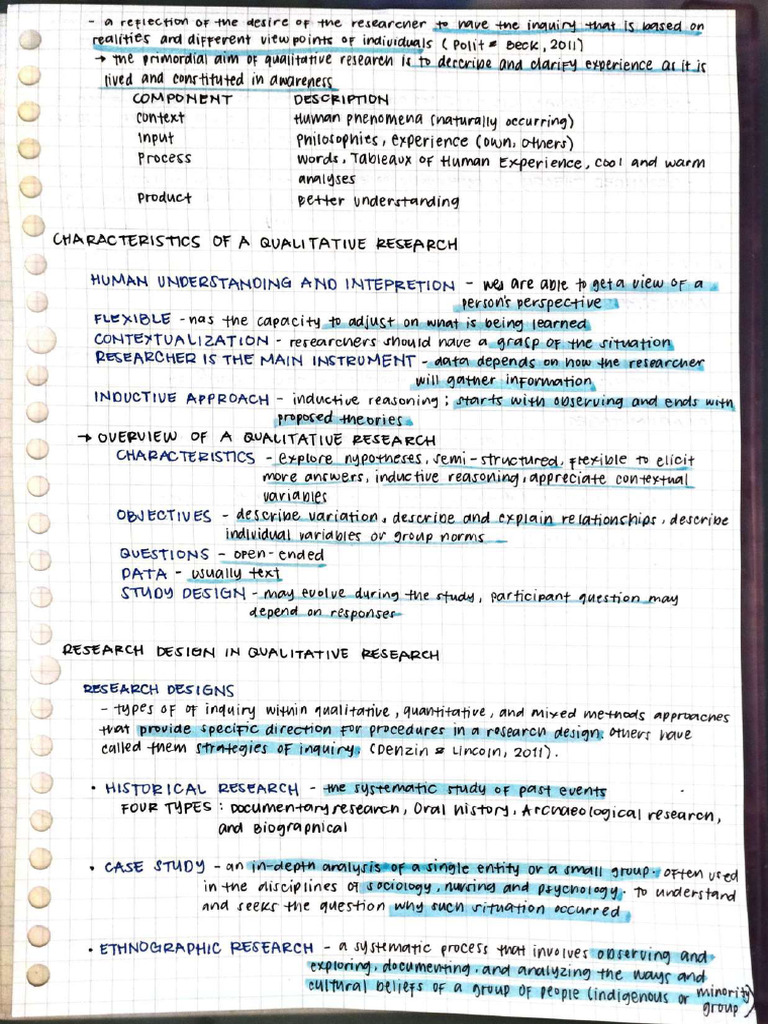 - a reflection of the desire of the researcher to have the inquiry that is based on
realities and different viewpoints of individuals (Polit & Beck, 2011)
→ the primordial aim of qualitative research is to describe and clarify experience as it is
lived and constituted in awareness
COMPONENT DESCRIPTION
Context Human phenomena (naturally occurring)
Input Philosophies, experience (own, others)
Process Words, Tableaux of Human Experience, cool and warm
analyses
Product Better understanding
CHARACTERISTICS OF A QUALITATIVE RESEARCH
HUMAN UNDERSTANDING AND INTEPRETION - we are able to get a view of a
person's perspective
FLEXIBLE - has the capacity to adjust on what is being learned
CONTEXTUALIZATION - researchers should have a grasp of the situation
RESEARCHER IS THE MAIN INSTRUMENT - data depends on how the researcher
will gather information
INDUCTIVE APPROACH - inductive reasoning ; starts with observing and ends with
proposed theories
→ OVERVIEW OF A QUALITATIVE RESEARCH
CHARACTERISTICS - explore hypotheses, semi-structured, flexible to elicit
more answers, inductive reasoning, appreciate contextual
variables
OBJECTIVES - describe variation, describe and explain relationships, describe
individual variables or group norms
QUESTIONS - open-ended
DATA - usually text
STUDY DESIGN - may evolve during the study, participant question may
depend on responses
RESEARCH DESIGN IN QUALITATIVE RESEARCH
RESEARCH DESIGNS
- types of of inquiry within qualitative, quantitative, and mixed methods approaches
that provide specific direction for procedures in a research design. Others have
called them strategies of inquiry. (Denzin & Lincoln, 2011).
• HISTORICAL RESEARCH - the systematic study of past events
FOUR TYPES : Documentary research, Oral history, Archaeological research,
and Biographical
• CASE STUDY - an in-depth analysis of a single entity or a small group. Often used
in the disciplines of sociology, nursing and psychology. to understand
and seeks the question why such situation occurred
• ETHNOGRAPHIC RESEARCH - a systematic process that involves observing and
exploring, documenting, and analyzing the ways and
cultural beliefs of a group of people (indigenous or minority
group)